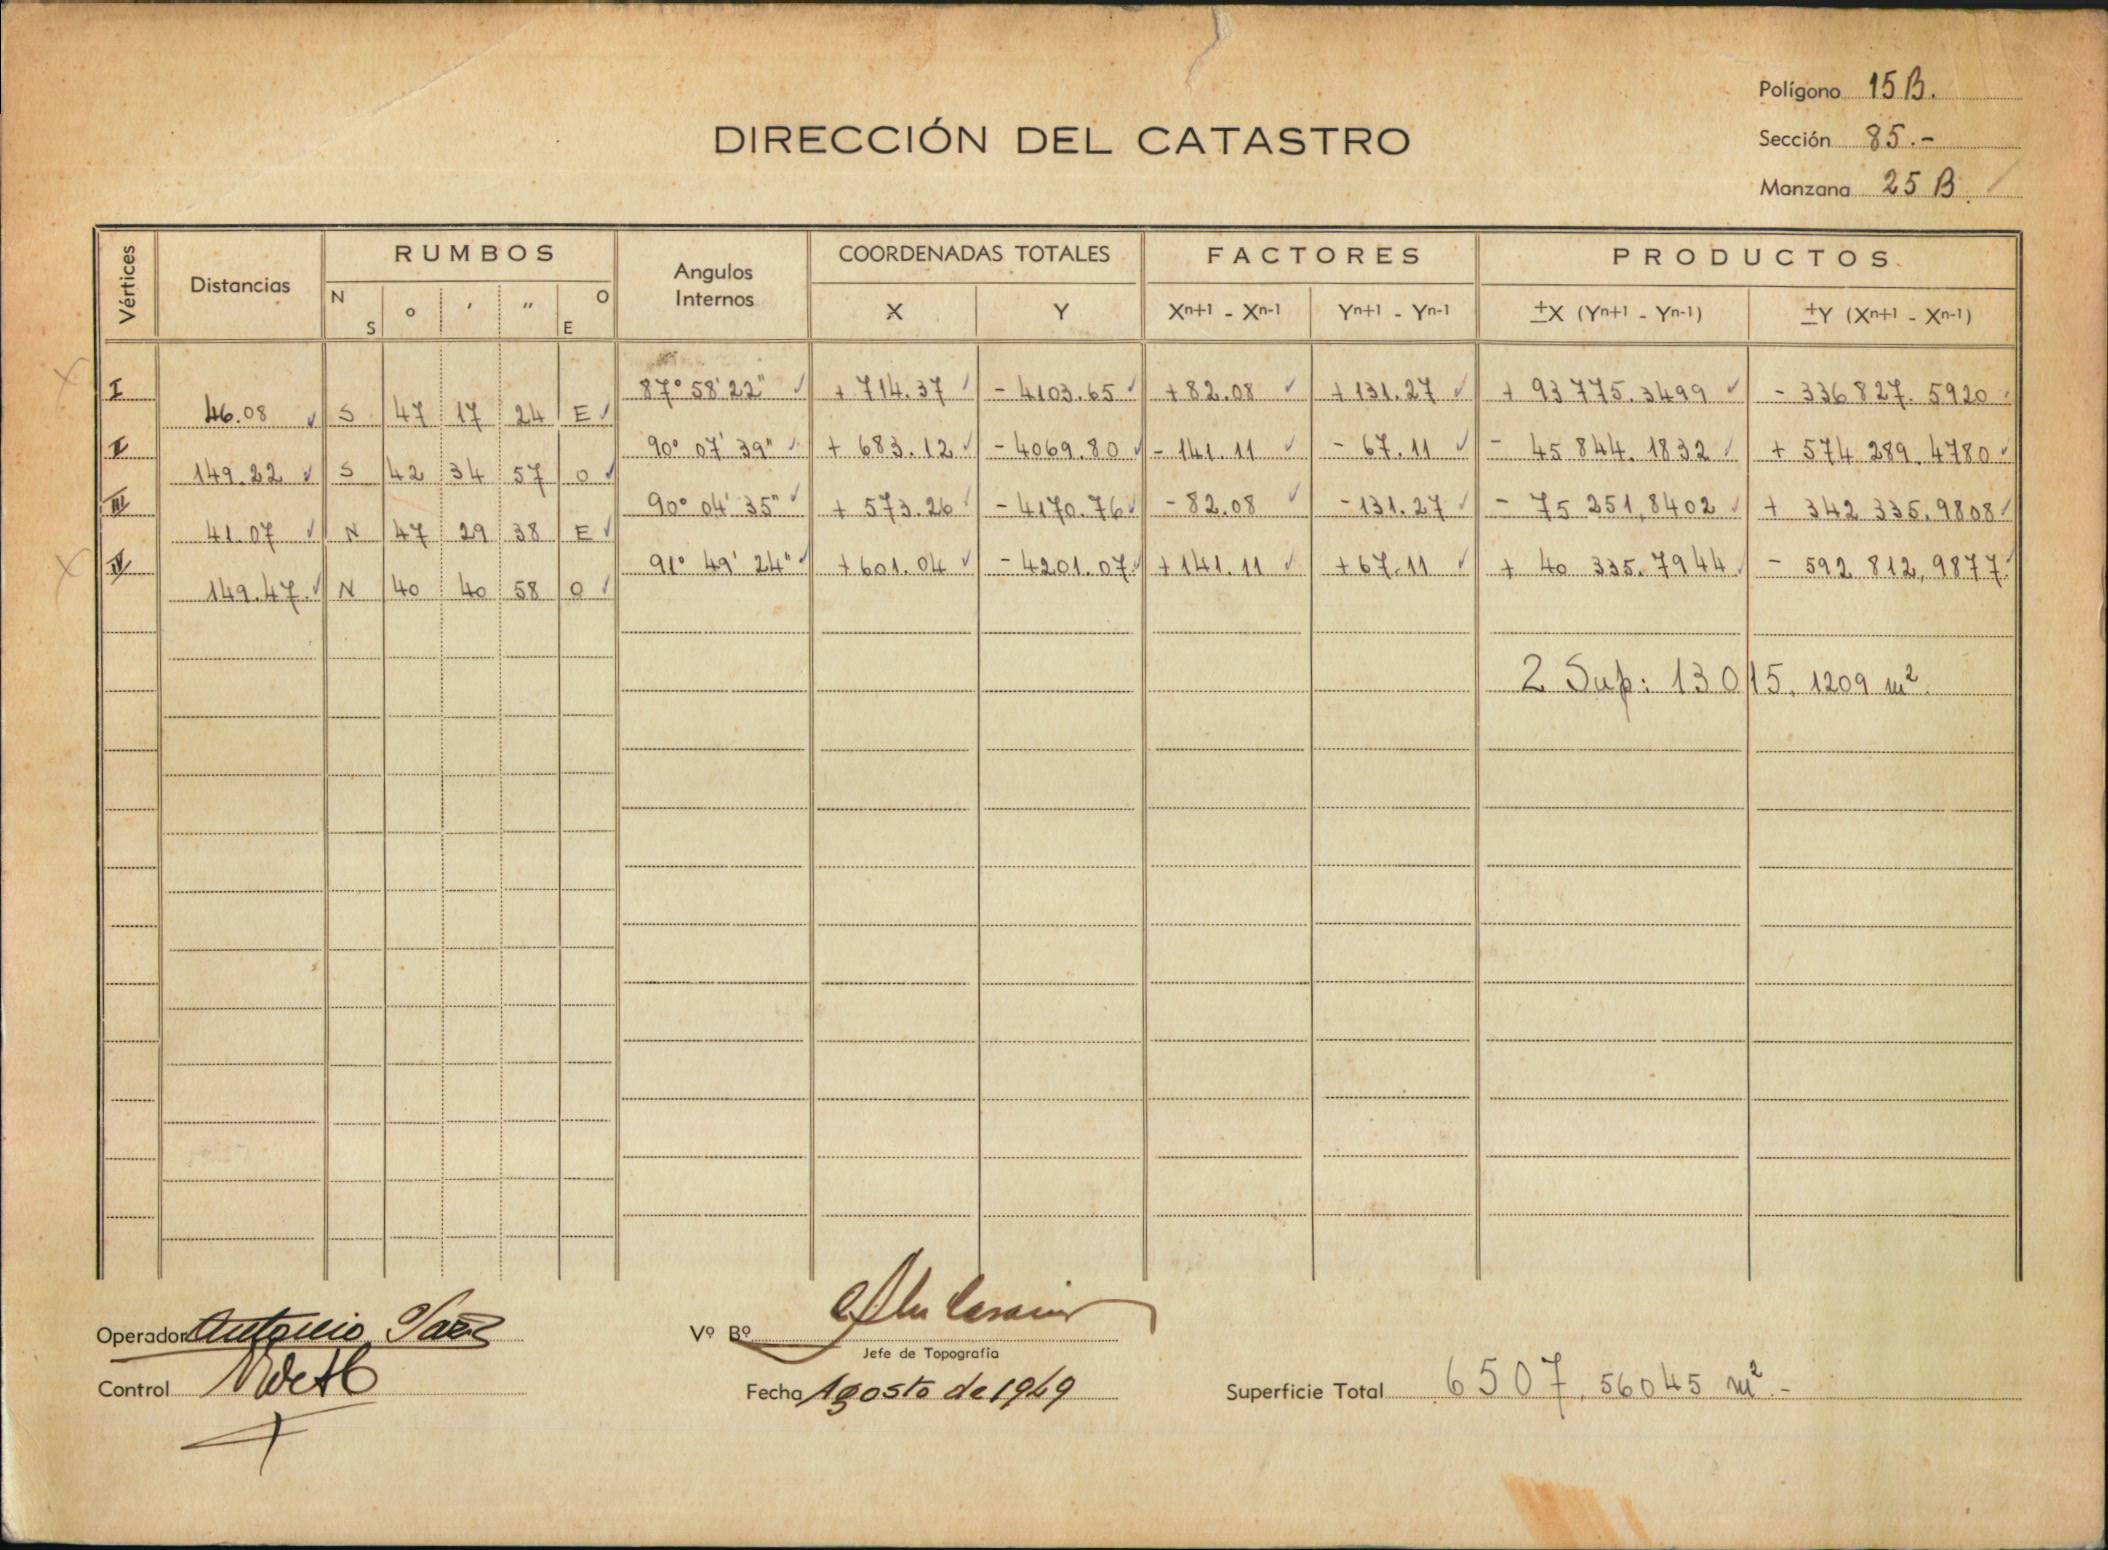 Polígono 15 B.
DIRECCIÓN DEL CATASTRO
Sección 85.-
Manzana 25 B
Vértices Distancias RUMBOS Angulos Internos COORDENADAS TOTALES FACTORES PRODUCTOS
N S ° ′ ″ O E X Y Xⁿ⁺¹ - Xⁿ⁻¹ Yⁿ⁺¹ - Yⁿ⁻¹ ±X (Yⁿ⁺¹ - Yⁿ⁻¹) ±Y (Xⁿ⁺¹ - Xⁿ⁻¹)
I 87° 58' 22" + 714.37 - 4103.65 + 82.08 + 131.27 + 93 775.3499 - 336 827.5920
46.08 S 47 17 24 E
II 90° 07' 39" + 683.12 - 4069.80 - 141.11 - 67.11 - 45 844.1832 + 574 289.4780
149.22 S 42 34 57 O
III 90° 04' 35" + 573.26 - 4170.76 - 82.08 - 131.27 - 75 251,8402 + 342 335.9808
41.07 N 47 29 38 E
IV 91° 49' 24" + 601.04 - 4201.07 + 141.11 + 67.11 + 40 335.7944 - 592 812,9877
149.47 N 40 40 58 O
2 Sup: 13015.1209 m²
Operador Antonio Saez
Vº Bº
Jefe de Topografía
Control
Fecha Agosto de 1949
Superficie Total 6507.56045 m².-